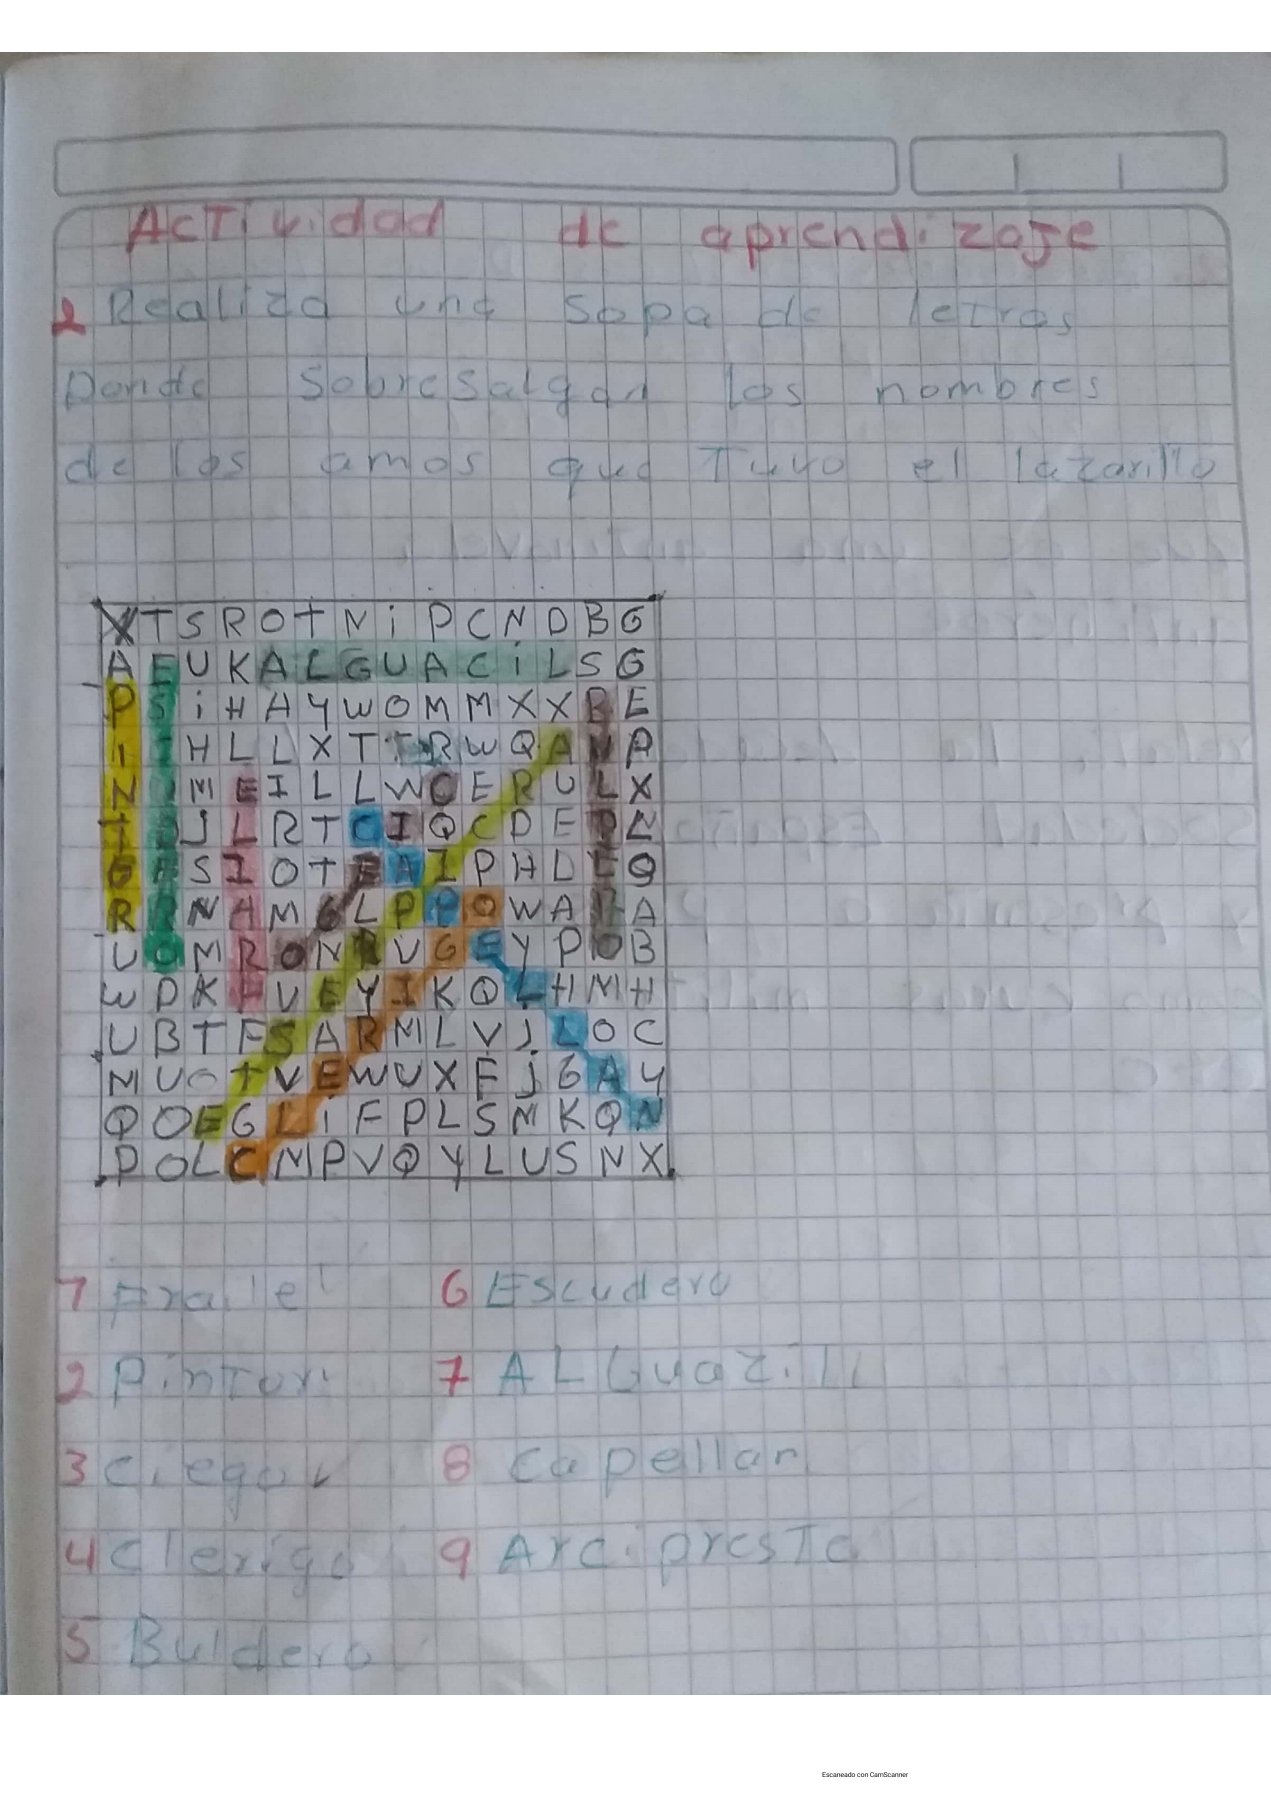 Actividad de aprendizaje
1 Realiza una sopa de letras
Donde sobresalgan los nombres
de los amos que Tuvo el lazarillo
X T S R O T N i P C N D B G
A E U K A L G U A C i L S G
P S i H A Y W O M M X X B E
I I H L L X T T R W Q A N P
N J M E I L L W C E R U L X
T D J L R T C I Q C P E D N
O E S I O T E A I P H L E Q
R R N A M G L P P O W A R A
U O M R O N R V G E Y P O B
W D K F V E Y I K Q L H M H
U B T F S A R M L V J L O C
M U O T V E W U X F j G A Y
Q O E G L i F P L S M K Q N
P O L C M P V Q Y L U S N X
1 Fraile 6 Escudero
2 Pintor 7 ALGuazil
3 Ciego 8 Capellan
4 Clerigo 9 Arcipreste
5 Buldero
Escaneado con CamScanner